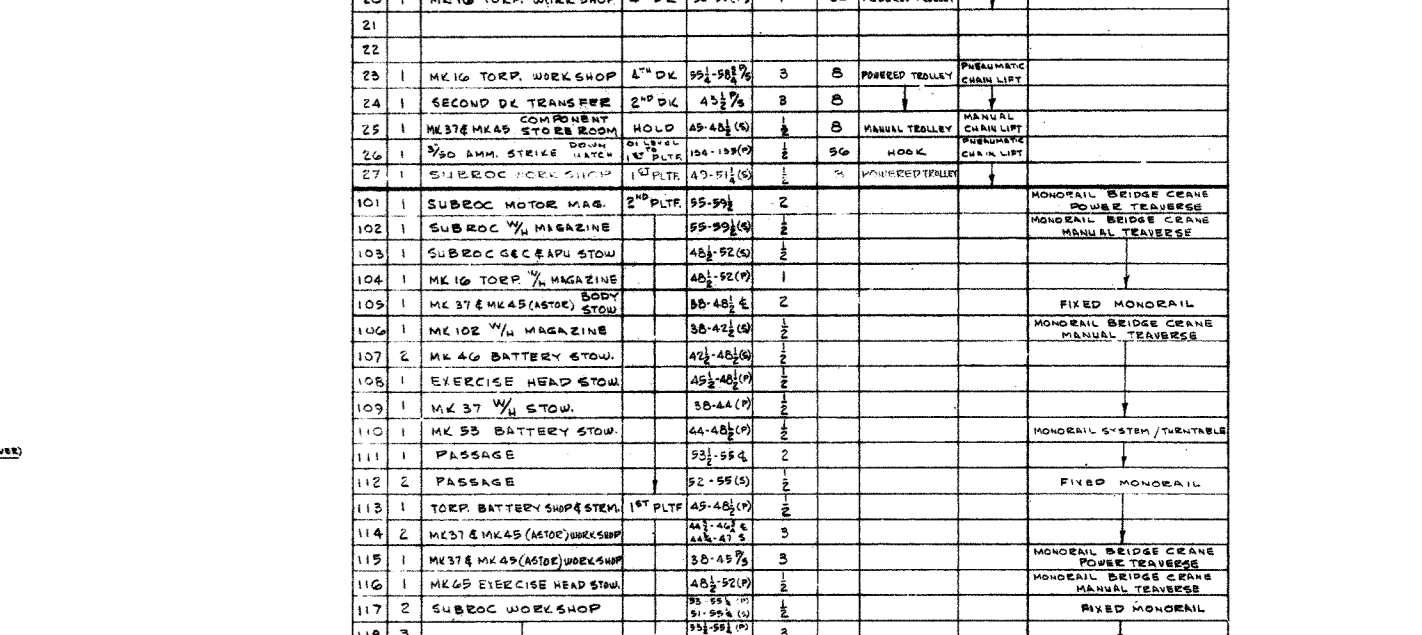 21
22
23 1 MK 16 TORP. WORKSHOP 4TH DK 55¼-58¾ P/S 3 8 POWERED TROLLEY PNEAUMATIC CHAIN LIFT
24 1 SECOND DK TRANSFER 2ND DK 43½ P/S 3 8
25 1 MK 37 & MK45 COMPONENT STORE ROOM HOLD 45-48½(S) ½ 8 MANUAL TROLLEY MANUAL CHAIN LIFT
26 1 3"/50 AMM. STRIKE DOWN HATCH 01 LEVEL TO 1ST PLTF. ½ 56 HOOK PNEAUMATIC CHAIN LIFT
27 1 SUBROC WORKSHOP 1ST PLTF. 49-51¼(S) ½ 3 POWERED TROLLEY
101 1 SUBROC MOTOR MAG. 2ND PLTF. 55-59½ 2 MONORAIL BRIDGE CRANE POWER TRAVERSE
102 1 SUBROC W/H MAGAZINE 55-59½(S) ½ MONORAIL BRIDGE CRANE MANUAL TRAVERSE
103 1 SUBROC G&C & APU STOW 48½-52(S) ½
104 1 MK 16 TORP. W/H MAGAZINE 48½-52(P) 1
105 1 MK 37 & MK45 (ASTOR) BODY STOW 38-48½ ℄ 2 FIXED MONORAIL
106 1 MK 102 W/H MAGAZINE 38-42½(S) ½ MONORAIL BRIDGE CRANE MANUAL TRAVERSE
107 2 MK 46 BATTERY STOW. 42½-48½(S) ½
108 1 EXERCISE HEAD STOW. 45½-48½(P) ½
109 1 MK 37 W/H STOW. 38-44(P) ½
110 1 MK 53 BATTERY STOW. 44-48½(P) ½ MONORAIL SYSTEM/TURNTABLE
111 1 PASSAGE 53½-55 ℄ 2
112 2 PASSAGE 52-55(S) ½ FIXED MONORAIL
113 1 TORP. BATTERY SHOP & STRM. 1ST PLTF 45-48½(P) ½
114 2 MK37 & MK45 (ASTOR) WORKSHOP 3
115 1 MK37 & MK45 (ASTOR) WORKSHOP 38-45 P/S 3 MONORAIL BRIDGE CRANE POWER TRAVERSE
116 1 MK65 EXERCISE HEAD STOW. 48½-52(P) ½ MONORAIL BRIDGE CRANE MANUAL TRAVERSE
117 2 SUBROC WORKSHOP ½ FIXED MONORAIL